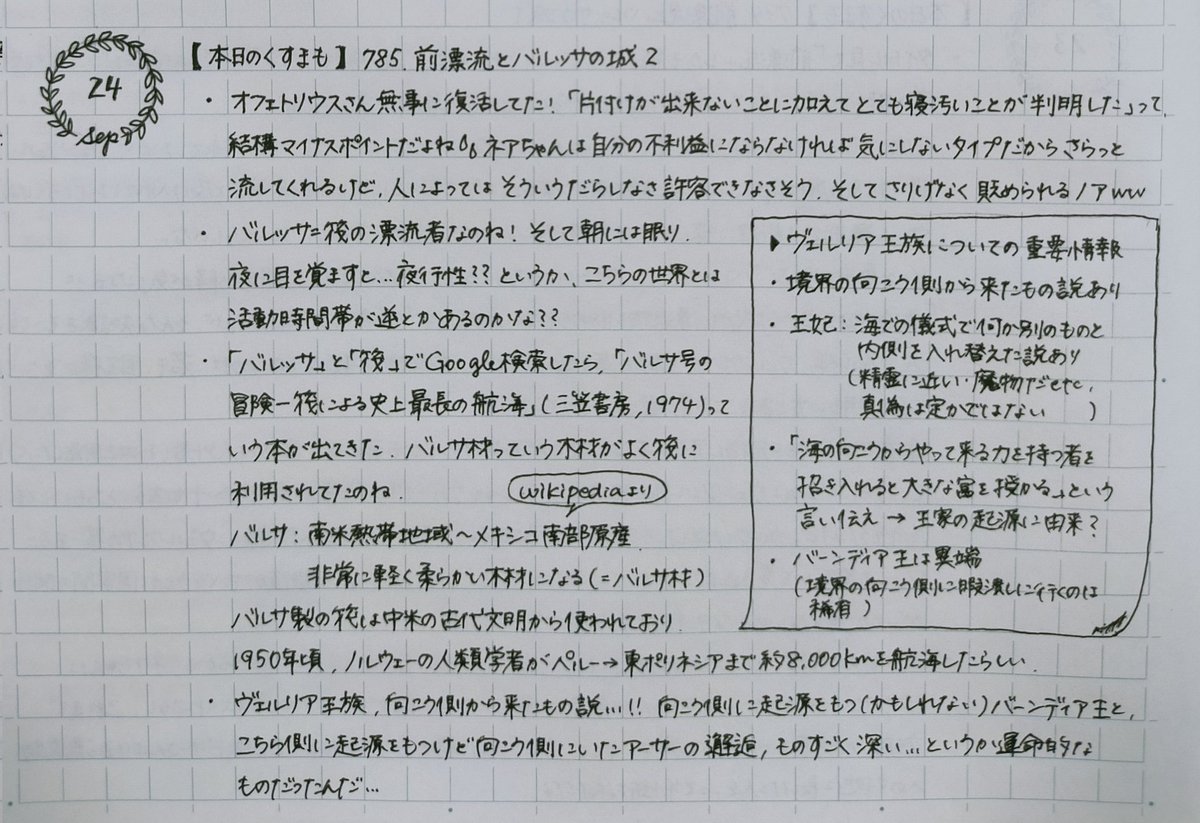 24
sep
【本日のくすまも】785. 前漂流とバルッサの城 2
・オフェトリウスさん無事に復活してた!「片付けが出来ないことに加えてとても寝汚いことが判明した」って、
結構マイナスポイントだよね。ネアちゃんは自分の不利益にならなければ気にしないタイプだからさらっと
流してくれるけど、人によってはそういうだらしなさ許容できなさそう. そしてさりげなく貶められるノアww
・バルッサ=筏の漂流者なのね! そして朝には眠り、
夜に目を覚ますと…夜行性?? というか、こちらの世界とは
活動時間帯が逆とかあるのかな??
・「バルッサ」と「筏」でGoogle検索したら,「バルサ号の
冒険―筏による史上最長の航海」(三笠書房, 1974)って
いう本が出てきた. バルサ材っていう木材がよく筏に
利用されてたのね.
wikipediaより
バルサ: 南米熱帯地域~メキシコ南部原産.
非常に軽く柔らかい木材になる(=バルサ材)
バルサ製の筏は中米の古代文明から使われており、
1950年頃, ノルウェーの人類学者がペルー→東ポリネシアまで約8,000kmを航海したらしい.
・ヴェルリア王族, 向こう側から来たもの説…!! 向こう側に起源をもつ(かもしれない)バーンディア王と、
こちら側に起源をもつけど向こう側にいたアーサーの邂逅, ものすごく深い…というか運命的な
ものだったんだ…
▶ヴェルリア王族についての重要情報
・境界の向こう側から来たもの説あり
・王妃: 海での儀式で何か別のものと
内側を入れ替えた説あり
(精霊に近い・魔物だetc,
真偽は定かではない)
・「海の向こうからやって来る力を持つ者を
招き入れると大きな富を授かる」という
言い伝え → 王家の起源に由来?
・バーンディア王は異端
(境界の向こう側に暇潰しに行くのは
稀有)